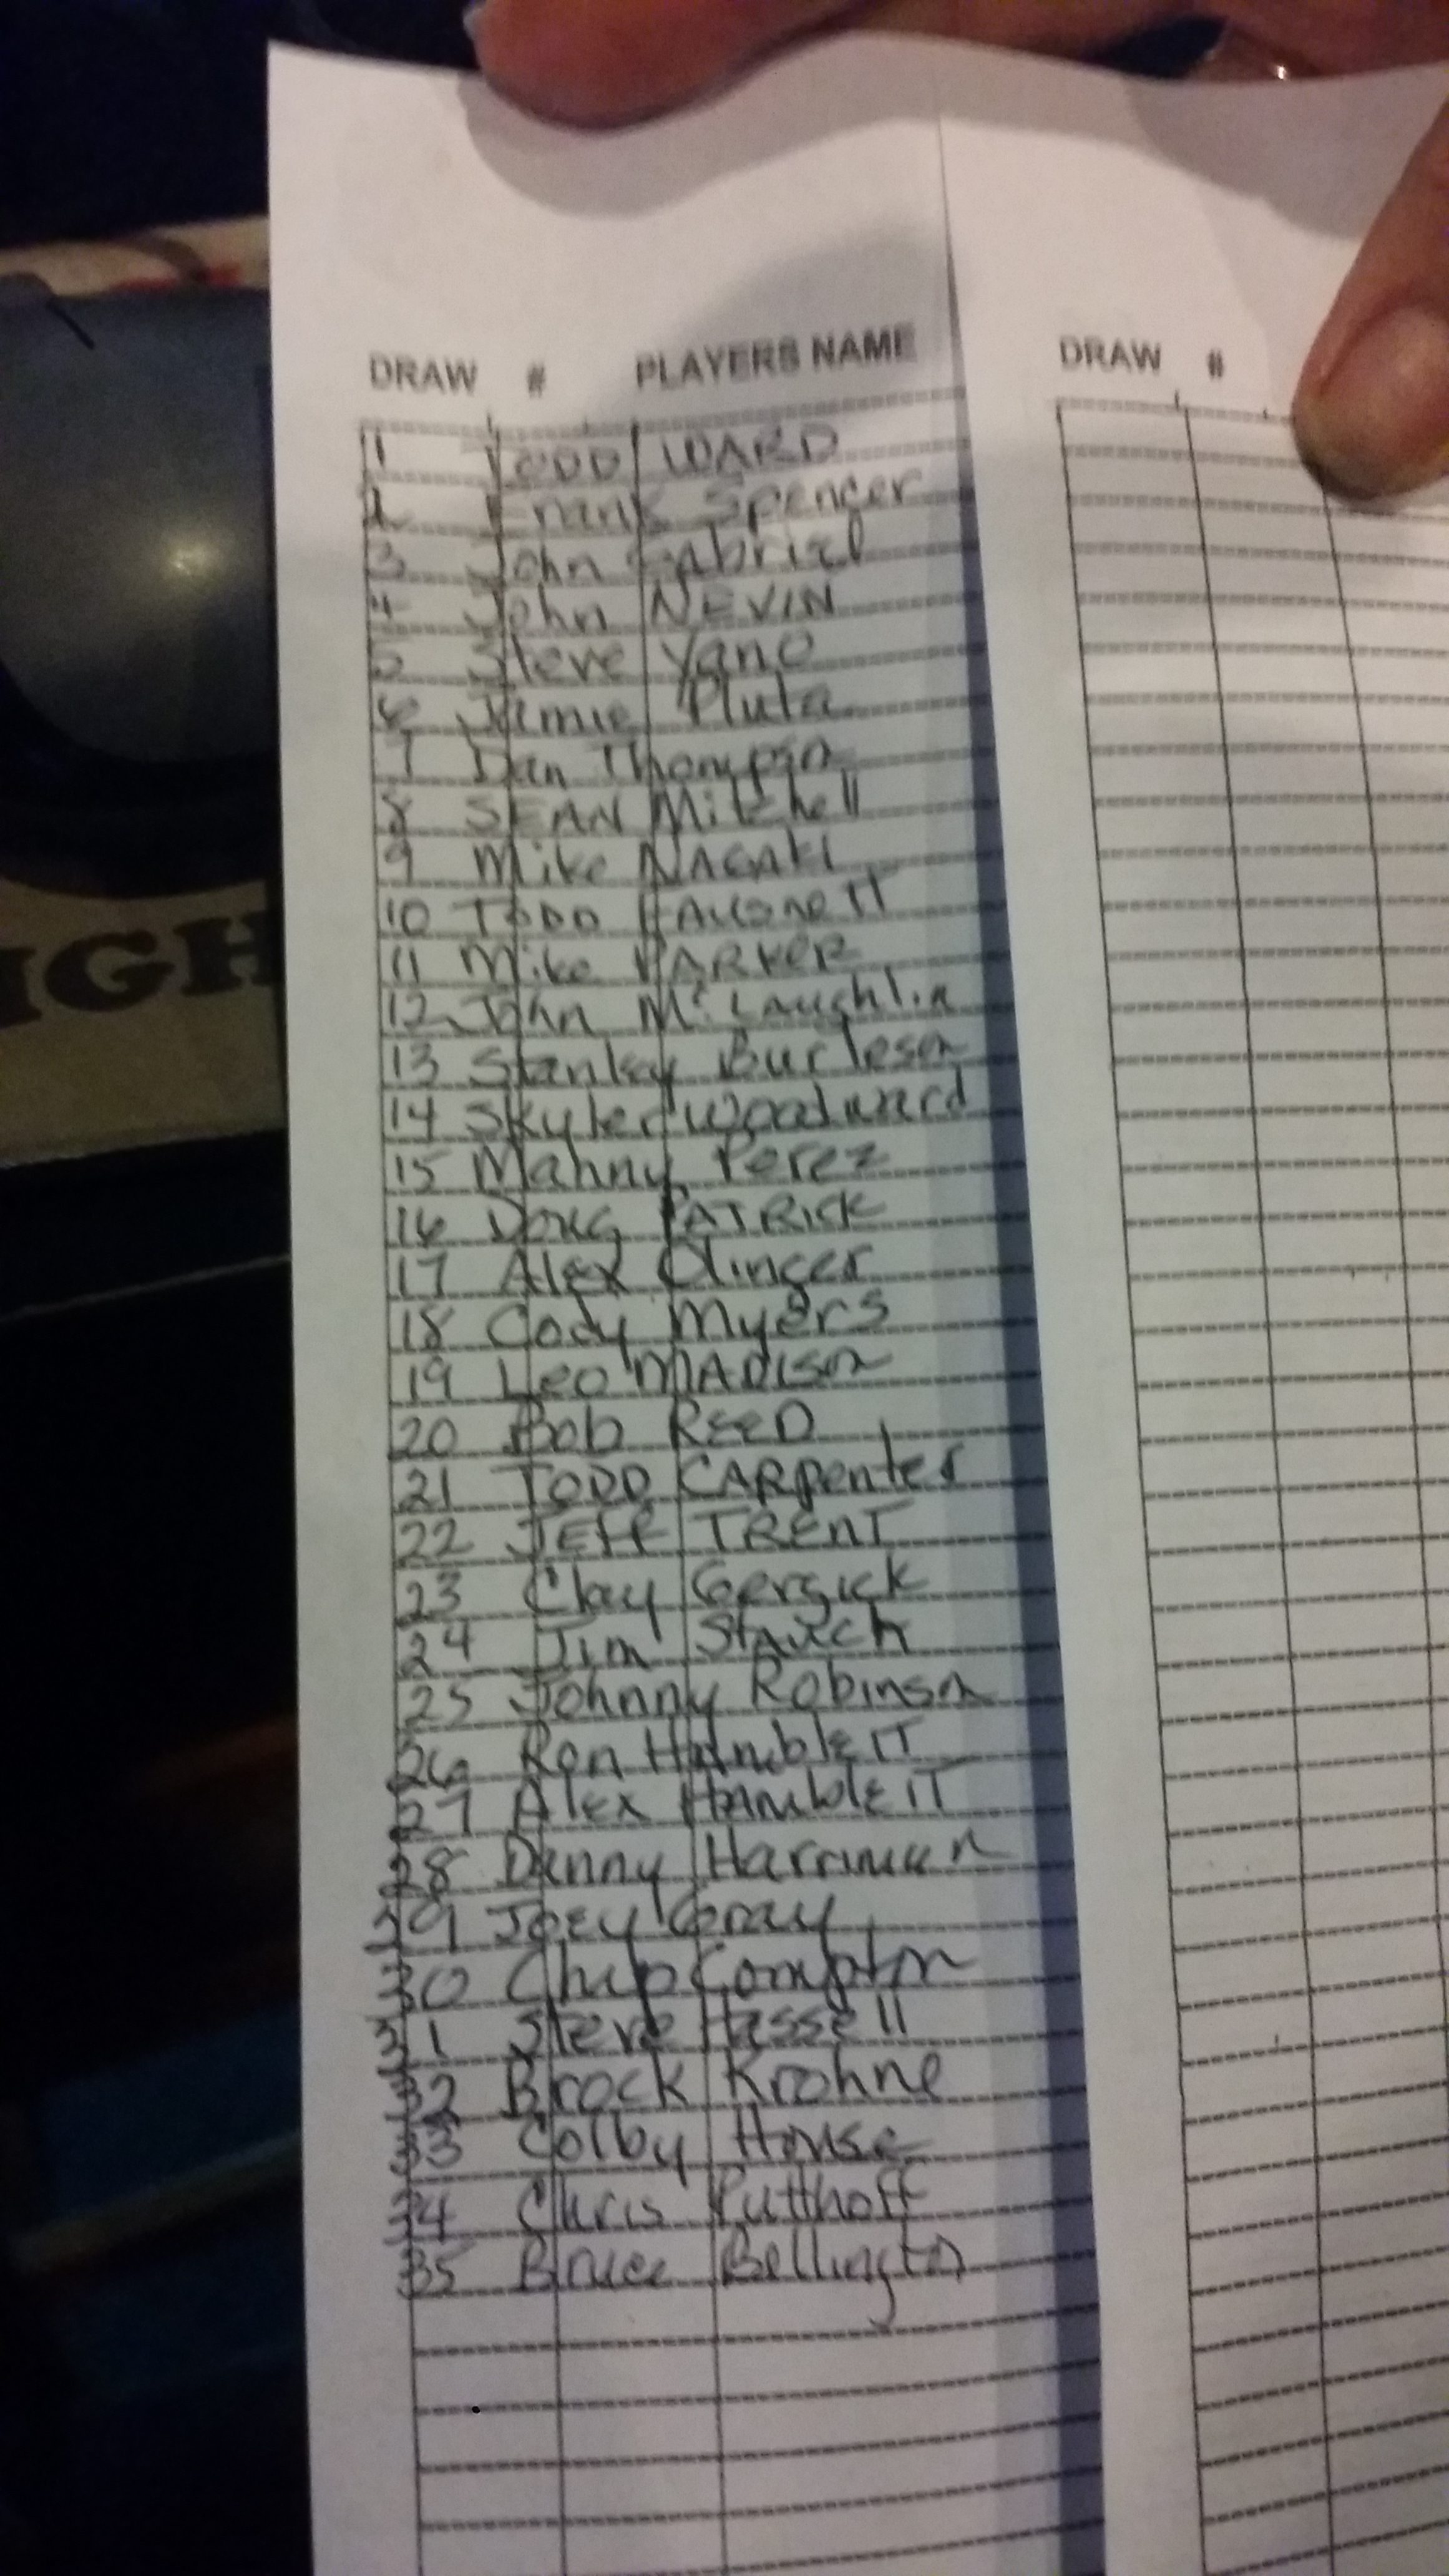 DRAW # PLAYERS NAME
1 TODD WARD
2 Frank Spencer
3 John Gabriel
4 John NEVIN
5 Steve Yano
6 Jamie Pluta
7 Dan Thompson
8 SEAN Mitchell
9 Mike NAGAKI
10 TODD
11 Mike PARKER
12 John McLaughlin
13 Stanley Burleson
14 Skyler Woodward
15 Manny Perez
16 DOUG PATRICK
17 Alex Olinger
18 Cody Myers
19 Leo MADISON
20 Bob REED
21 TODD CARpenter
22 JEFF TRENT
23 Clay Gersick
24 Jim Stauch
25 Johnny Robinson
26 Ron HAmblEtT
27 Alex HamblEtT
28 Danny Harriman
29 JoEy Gray
30 Chip Compton
31 Steve Hassell
32 Brock Krohne
33 Colby House
34 Chris Putthoff
35 Bruce Bellington
DRAW #
IGH